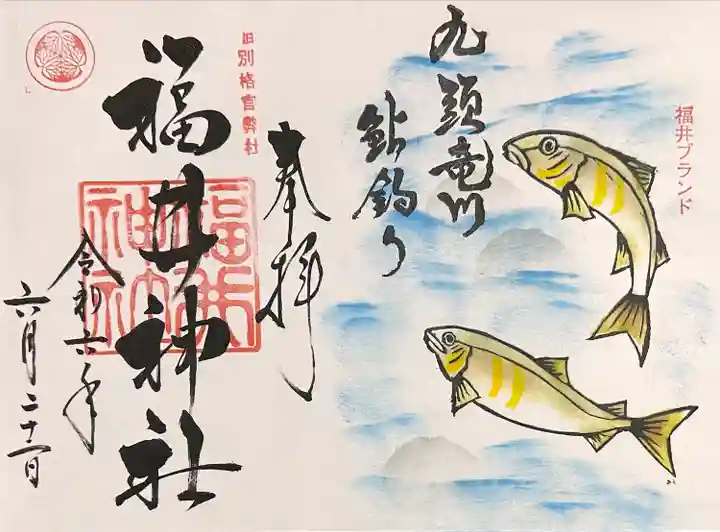 福井ブランド
九頭竜川
鮎釣り
奉拝
旧別格官弊社
福井神社
福井神社
令和六年
六月二十一日